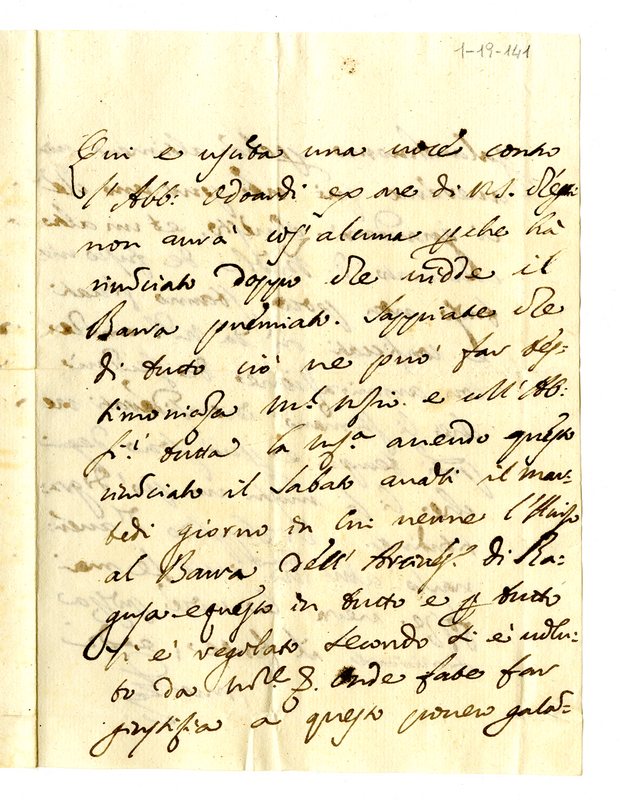 1-19-141
Qui è uscita una voce contro
l'Abb: Odoardi ex are di N.S. ch'egli
non avrà cos' alcuna p che hà
rinũciato doppo che vidde il
Bawa premiato. Sappiate che
di tutto ciò ne può far tes-
timoniãza e coll' Ab:
tutta la avendo questo
rinũciato il Sabato avãti il mar-
tedi giorno in cui venne l'
al Bawa dell' Arcives. di Ra-
gusa e questo in tutto e p tutto
si è regolato secondo si è volu-
to da onde fate far
giustizia a questo povero galã-